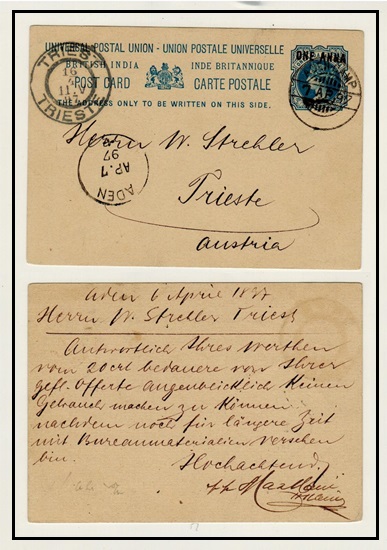 UNIVERSAL POSTAL UNION · UNION POSTALE UNIVERSELLE
ONE ANNA
BRITISH INDIA INDE BRITANNIQUE
POST CARD CARTE POSTALE
THE ADDRESS ONLY TO BE WRITTEN ON THIS SIDE.
TRIEST
16
4
11
TRIEST
Herrn W. Strehler
ADEN
AP. 7
97
Trieste
Austria
Aden 6 April 1897
Herrn W. Strehler Triest
Antwortlich Ihres Werthen
vom 20 crt bedauere von Ihrer
gefl. Offerte augenblicklich keinen
Gebrauch machen zu können
nachdem noch für längere Zeit
mit Bureaumaterialien versehen
bin.
Hochachtend